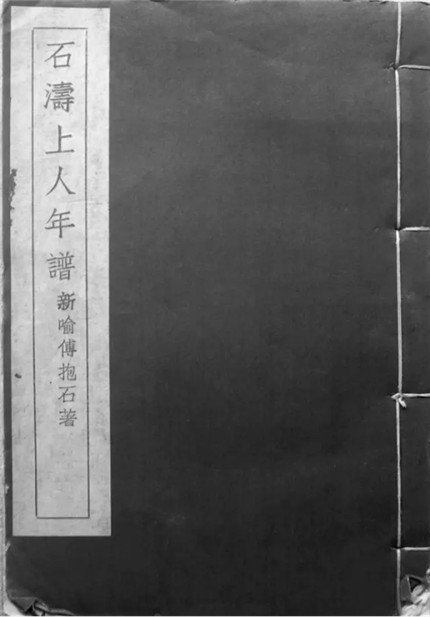 石濤上人年譜 新喻傅抱石著